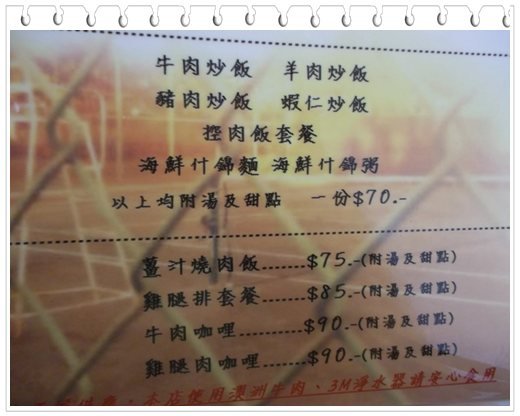 牛肉炒飯 羊肉炒飯
豬肉炒飯 蝦仁炒飯
控肉飯套餐
海鮮什錦麵 海鮮什錦粥
以上均附湯及甜點 一份$70.-
薑汁燒肉飯......$75.-(附湯及甜點)
雞腿排套餐......$85.-(附湯及甜點)
牛肉咖哩......$90.-(附湯及甜點)
雞腿肉咖哩......$90.-(附湯及甜點)
本店使用澳洲牛肉、3M淨水器請安心食用